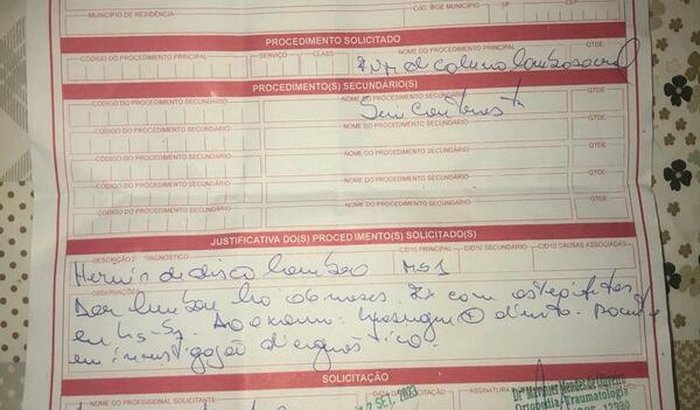 MUNICÍPIO DE RESIDÊNCIA CÓD. IBGE MUNICÍPIO UF CEP
PROCEDIMENTO SOLICITADO
CÓDIGO DO PROCEDIMENTO PRINCIPAL SERVIÇO CLASS NOME DO PROCEDIMENTO PRINCIPAL QTDE
de coluna lombosacral
PROCEDIMENTO(S) SECUNDÁRIO(S)
CÓDIGO DO PROCEDIMENTO SECUNDÁRIO NOME DO PROCEDIMENTO SECUNDÁRIO QTDE
Sem contraste
CÓDIGO DO PROCEDIMENTO SECUNDÁRIO NOME DO PROCEDIMENTO SECUNDÁRIO QTDE
CÓDIGO DO PROCEDIMENTO SECUNDÁRIO NOME DO PROCEDIMENTO SECUNDÁRIO QTDE
CÓDIGO DO PROCEDIMENTO SECUNDÁRIO NOME DO PROCEDIMENTO SECUNDÁRIO QTDE
CÓDIGO DO PROCEDIMENTO SECUNDÁRIO NOME DO PROCEDIMENTO SECUNDÁRIO QTDE
JUSTIFICATIVA DO(S) PROCEDIMENTO(S) SOLICITADO(S)
DESCRIÇÃO DIAGNÓSTICO CID10 PRINCIPAL CID10 SECUNDÁRIO CID10 CAUSAS ASSOCIADAS
Hernia de disco lombar M51
OBSERVAÇÕES
Dor lombar há 06 meses. RX com osteofitos
em L5-S1. Ao exame: Lasegue + direito. Paciente
em investigação diagnóstico.
SOLICITAÇÃO
NOME DO PROFISSIONAL SOLICITANTE DATA DA SOLICITAÇÃO ASSINATURA
SET. 2023
Mendes de Oliveira
Ortopedia Traumatologia